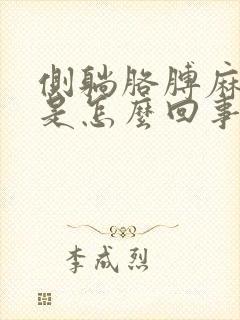 側躺胳膊麻
是怎麼回事
李成烈